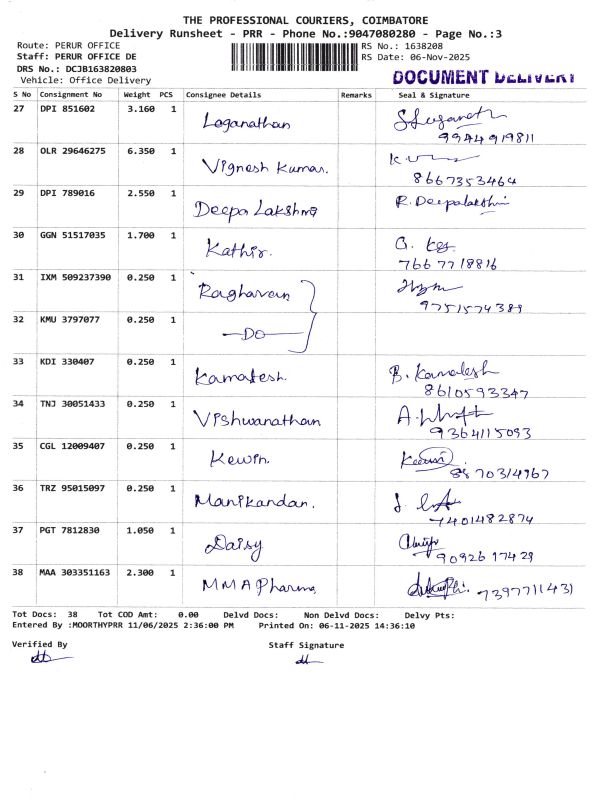 THE PROFESSIONAL COURIERS, COIMBATORE
Delivery Runsheet - PRR - Phone No.:9047080280 - Page No.:3
Route: PERUR OFFICE RS No.: 1638208
Staff: PERUR OFFICE DE RS Date: 06-Nov-2025
DRS No.: DCJB163820803
Vehicle: Office Delivery DOCUMENT DELIVERY
S No Consignment No Weight PCS Consignee Details Remarks Seal & Signature
27 DPI 851602 3.160 1 Loganathan
9944919811
28 OLR 29646275 6.350 1 Vignesh Kumar.
8667353464
29 DPI 789016 2.550 1 Deepa Lakshmi R. Deepalakshmi
30 GGN 51517035 1.700 1 Kathir.
7667718816
31 IXM 509237390 0.250 1 Raghavan
9751574389
32 KMU 3797077 0.250 1 —DO—
33 KDI 330407 0.250 1 Kamalesh. B. Kamalesh
8610593347
34 TNJ 30051433 0.250 1 Vishwanathan
9364115093
35 CGL 12009407 0.250 1 Kewin.
8870314967
36 TRZ 95015097 0.250 1 Manikandan.
7401482874
37 PGT 7812830 1.050 1 Daisy
9092617429
38 MAA 303351163 2.300 1 MMA Pharma,
7397711431
Tot Docs: 38 Tot COD Amt: 0.00 Delvd Docs: Non Delvd Docs: Delvy Pts:
Entered By :MOORTHYPRR 11/06/2025 2:36:00 PM Printed On: 06-11-2025 14:36:10
Verified By Staff Signature